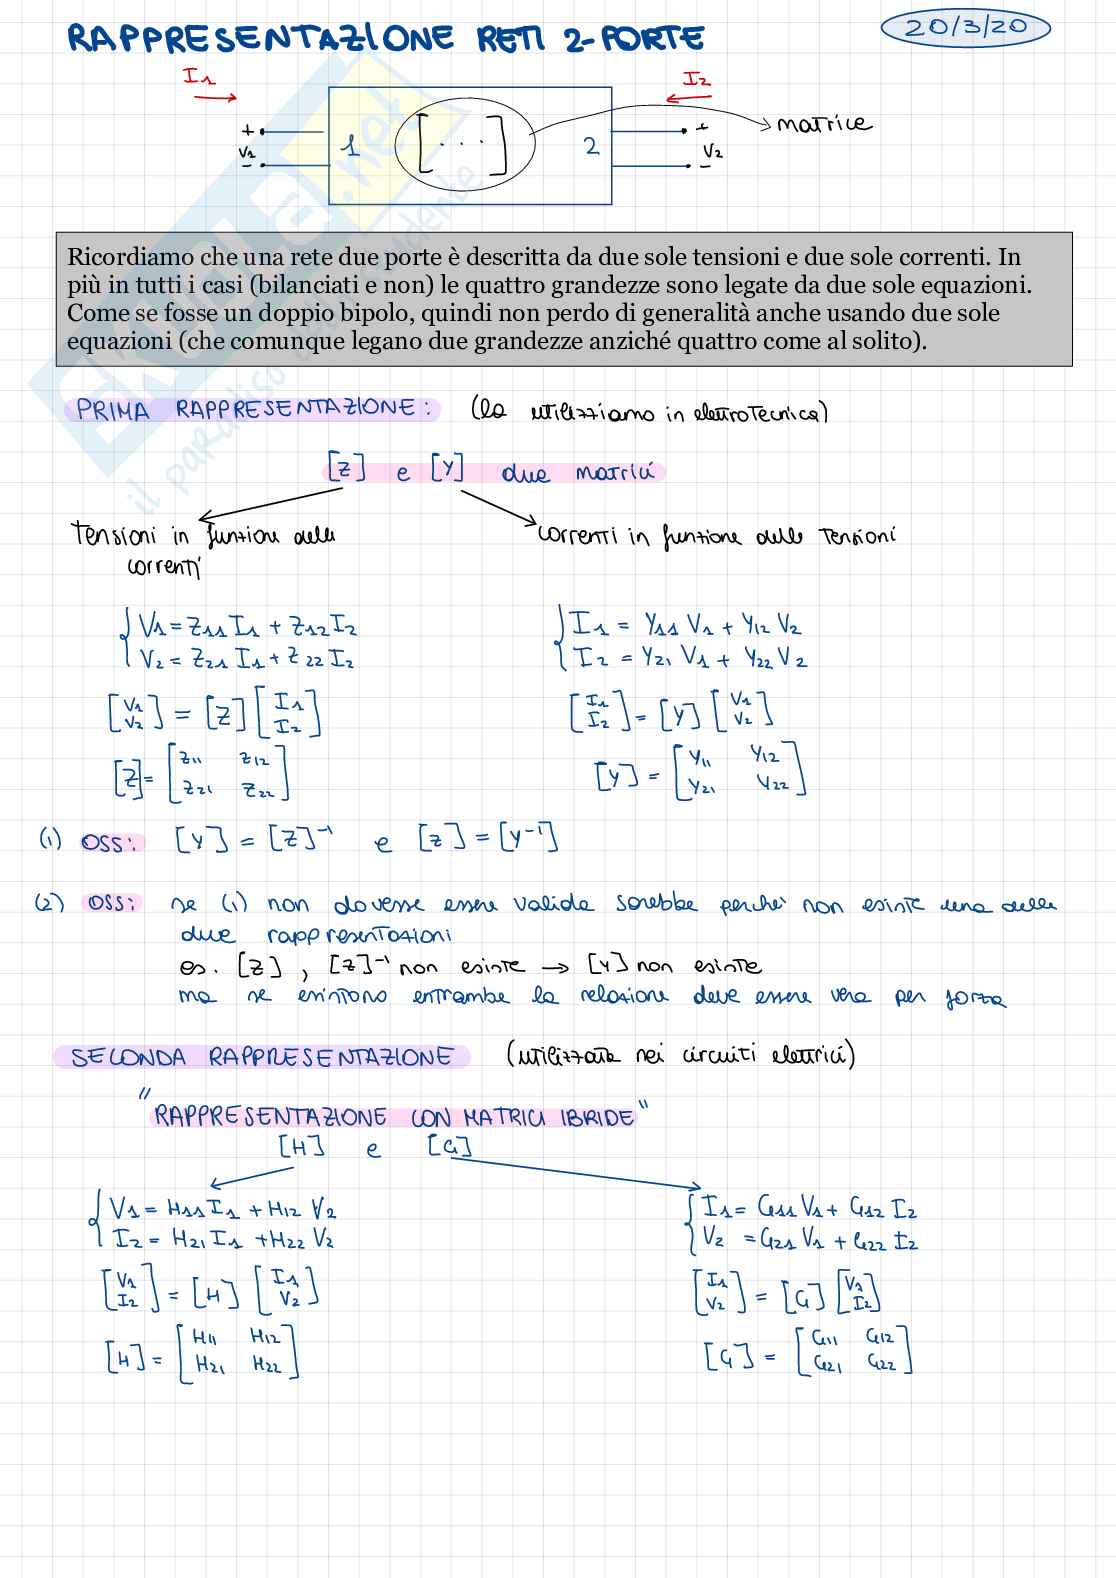 RAPPRESENTAZIONE RETI 2-PORTE
20/3/20
I1
I2
+ V1 -
1
[ ... ]
2
+ V2 -
matrice
SKUOLA.net
il paradiso dello studente
Ricordiamo che una rete due porte è descritta da due sole tensioni e due sole correnti. In
più in tutti i casi (bilanciati e non) le quattro grandezze sono legate da due sole equazioni.
Come se fosse un doppio bipolo, quindi non perdo di generalità anche usando due sole
equazioni (che comunque legano due grandezze anziché quattro come al solito).
PRIMA RAPPRESENTAZIONE: (la utilizziamo in elettrotecnica)
[Z] e [Y] due matrici
tensioni in funzione delle
correnti
correnti in funzione delle tensioni
{ V1 = Z11 I1 + Z12 I2
V2 = Z21 I1 + Z22 I2
{ I1 = Y11 V1 + Y12 V2
I2 = Y21 V1 + Y22 V2
[V1 V2] = [Z] [I1 I2]
[I1 I2] = [Y] [V1 V2]
[Z] = [Z11 Z12
Z21 Z22]
[Y] = [Y11 Y12
Y21 Y22]
(1) OSS: [Y] = [Z]⁻¹ e [Z] = [Y⁻¹]
(2) OSS: se (1) non dovesse essere valida sarebbe perché non esiste una delle
due rappresentazioni
es. [Z] , [Z]⁻¹ non esiste → [Y] non esiste
ma se esistono entrambe la relazione deve essere vera per forza
SECONDA RAPPRESENTAZIONE (utilizzata nei circuiti elettrici)
"RAPPRESENTAZIONE CON MATRICI IBRIDE"
[H] e [G]
{ V1 = H11 I1 + H12 V2
I2 = H21 I1 + H22 V2
{ I1 = G11 V1 + G12 I2
V2 = G21 V1 + G22 I2
[V1 I2] = [H] [I1 V2]
[I1 V2] = [G] [V1 I2]
[H] = [H11 H12
H21 H22]
[G] = [G11 G12
G21 G22]